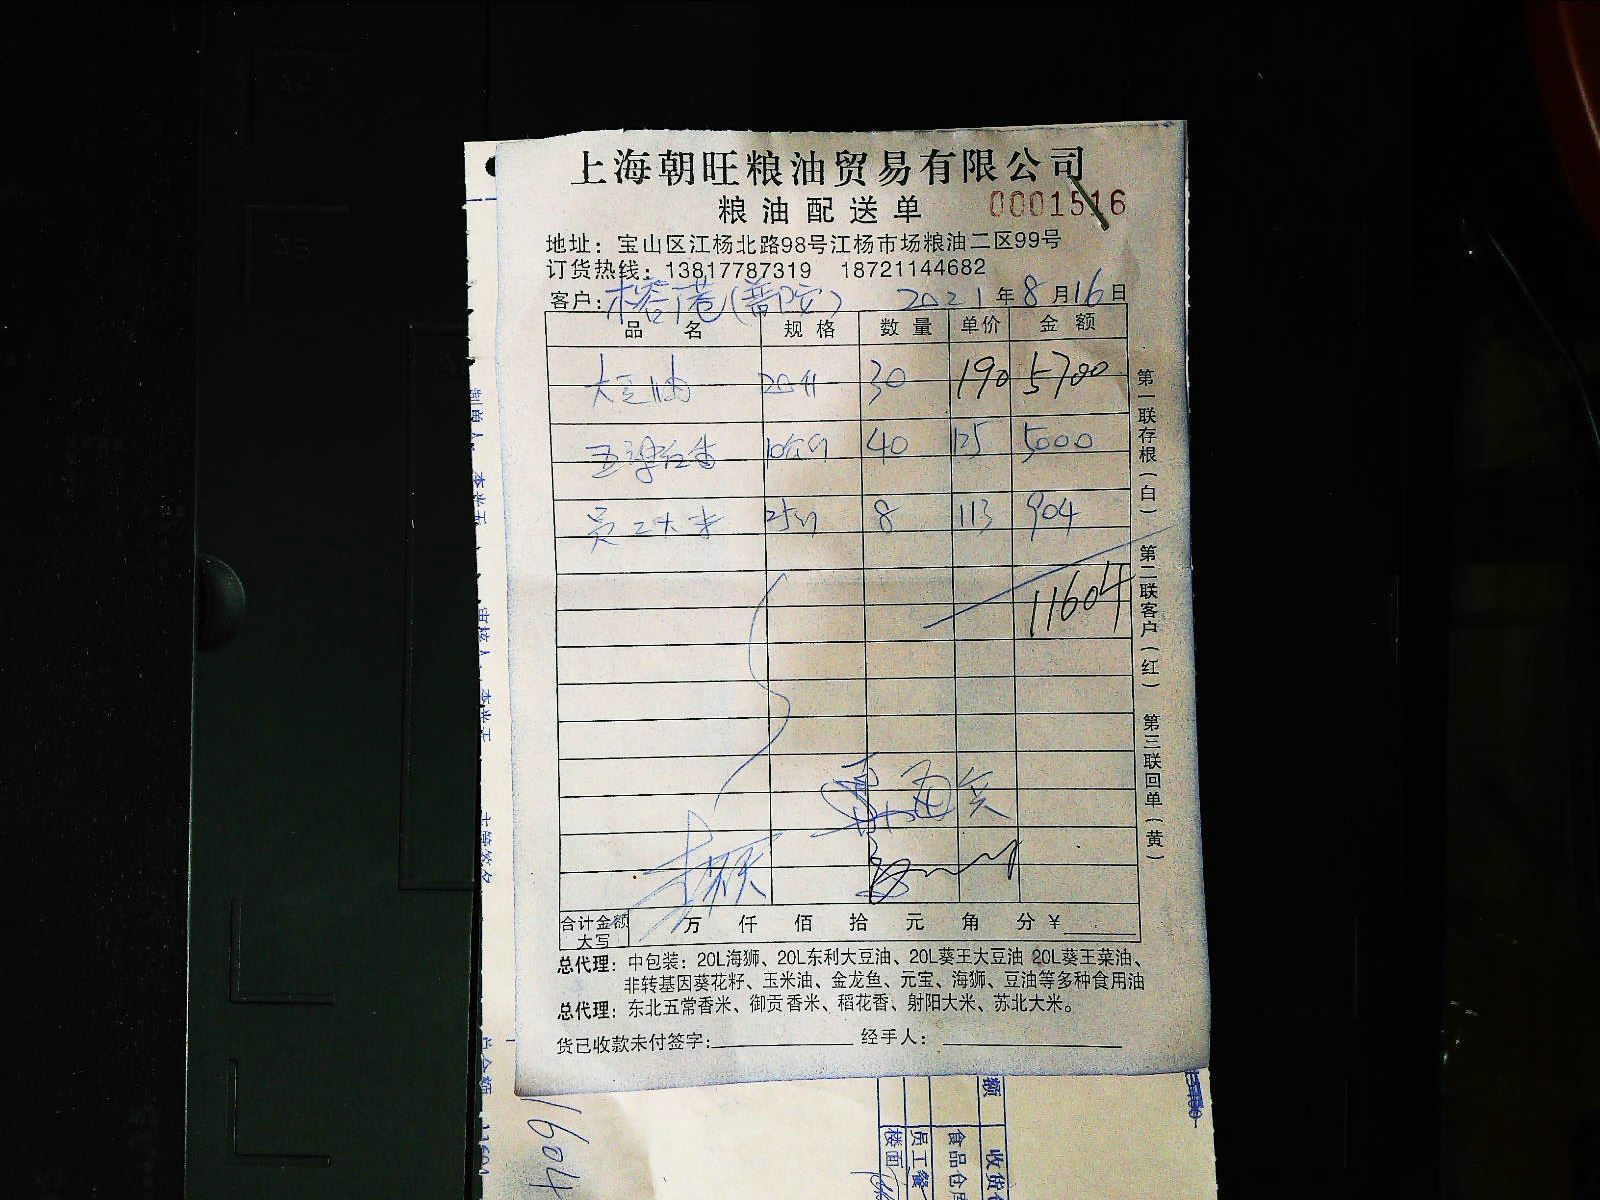 上海朝旺粮油贸易有限公司
粮油配送单 0001516
地址：宝山区江杨北路98号江杨市场粮油二区99号
订货热线：13817787319 18721144682
客户：榕港(普陀) 2021年8月16日
品名 规格 数量 单价 金额
大豆油 20升 30 190 5700
10公斤 40 125 5000
员工大米 25 8 113 904
11604
第一联存根（白）
第二联客户（红）
第三联回单（黄）
合计金额大写 万 仟 佰 拾 元 角 分 ¥
总代理：中包装：20L海狮、20L东利大豆油、20L葵王大豆油 20L葵王菜油、
非转基因葵花籽、玉米油、金龙鱼、元宝、海狮、豆油等多种食用油
总代理：东北五常香米、御贡香米、稻花香、射阳大米、苏北大米。
货已收款未付签字： 经手人：
1604
额
收货
食品仓库
员工餐
楼面